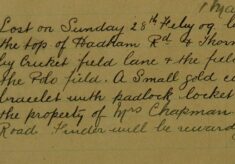 1 Ma
Lost on Sunday 28th Feby 09
the top of Hadham Rd & Thorn
by Cricket field lane & the field
the Polo field. A Small gold c
bracelet with padlock locket
the property of Mrs Chapman
Road Finder will be reward